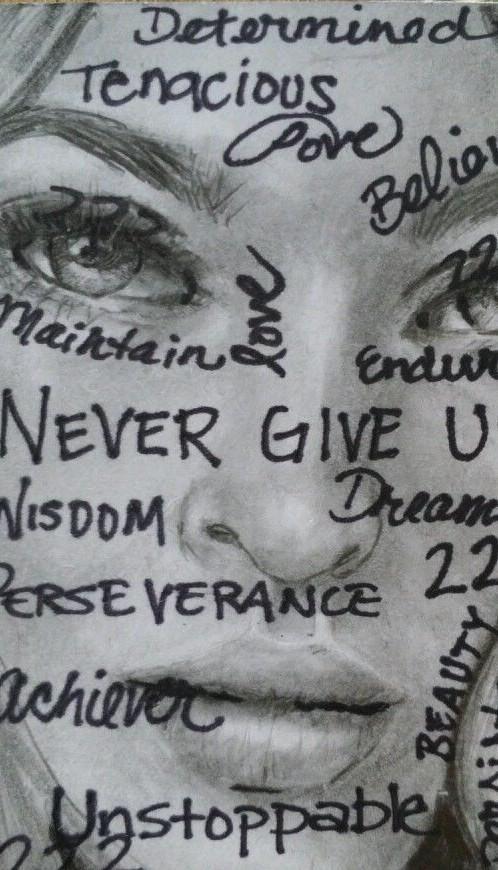 Determined
Tenacious
Love
Believ
222
22
love
Maintain
Endur
NEVER GIVE U
WISDOM
Dream
22
PERSEVERANCE
BEAUTY
achiever
Unstoppable
222